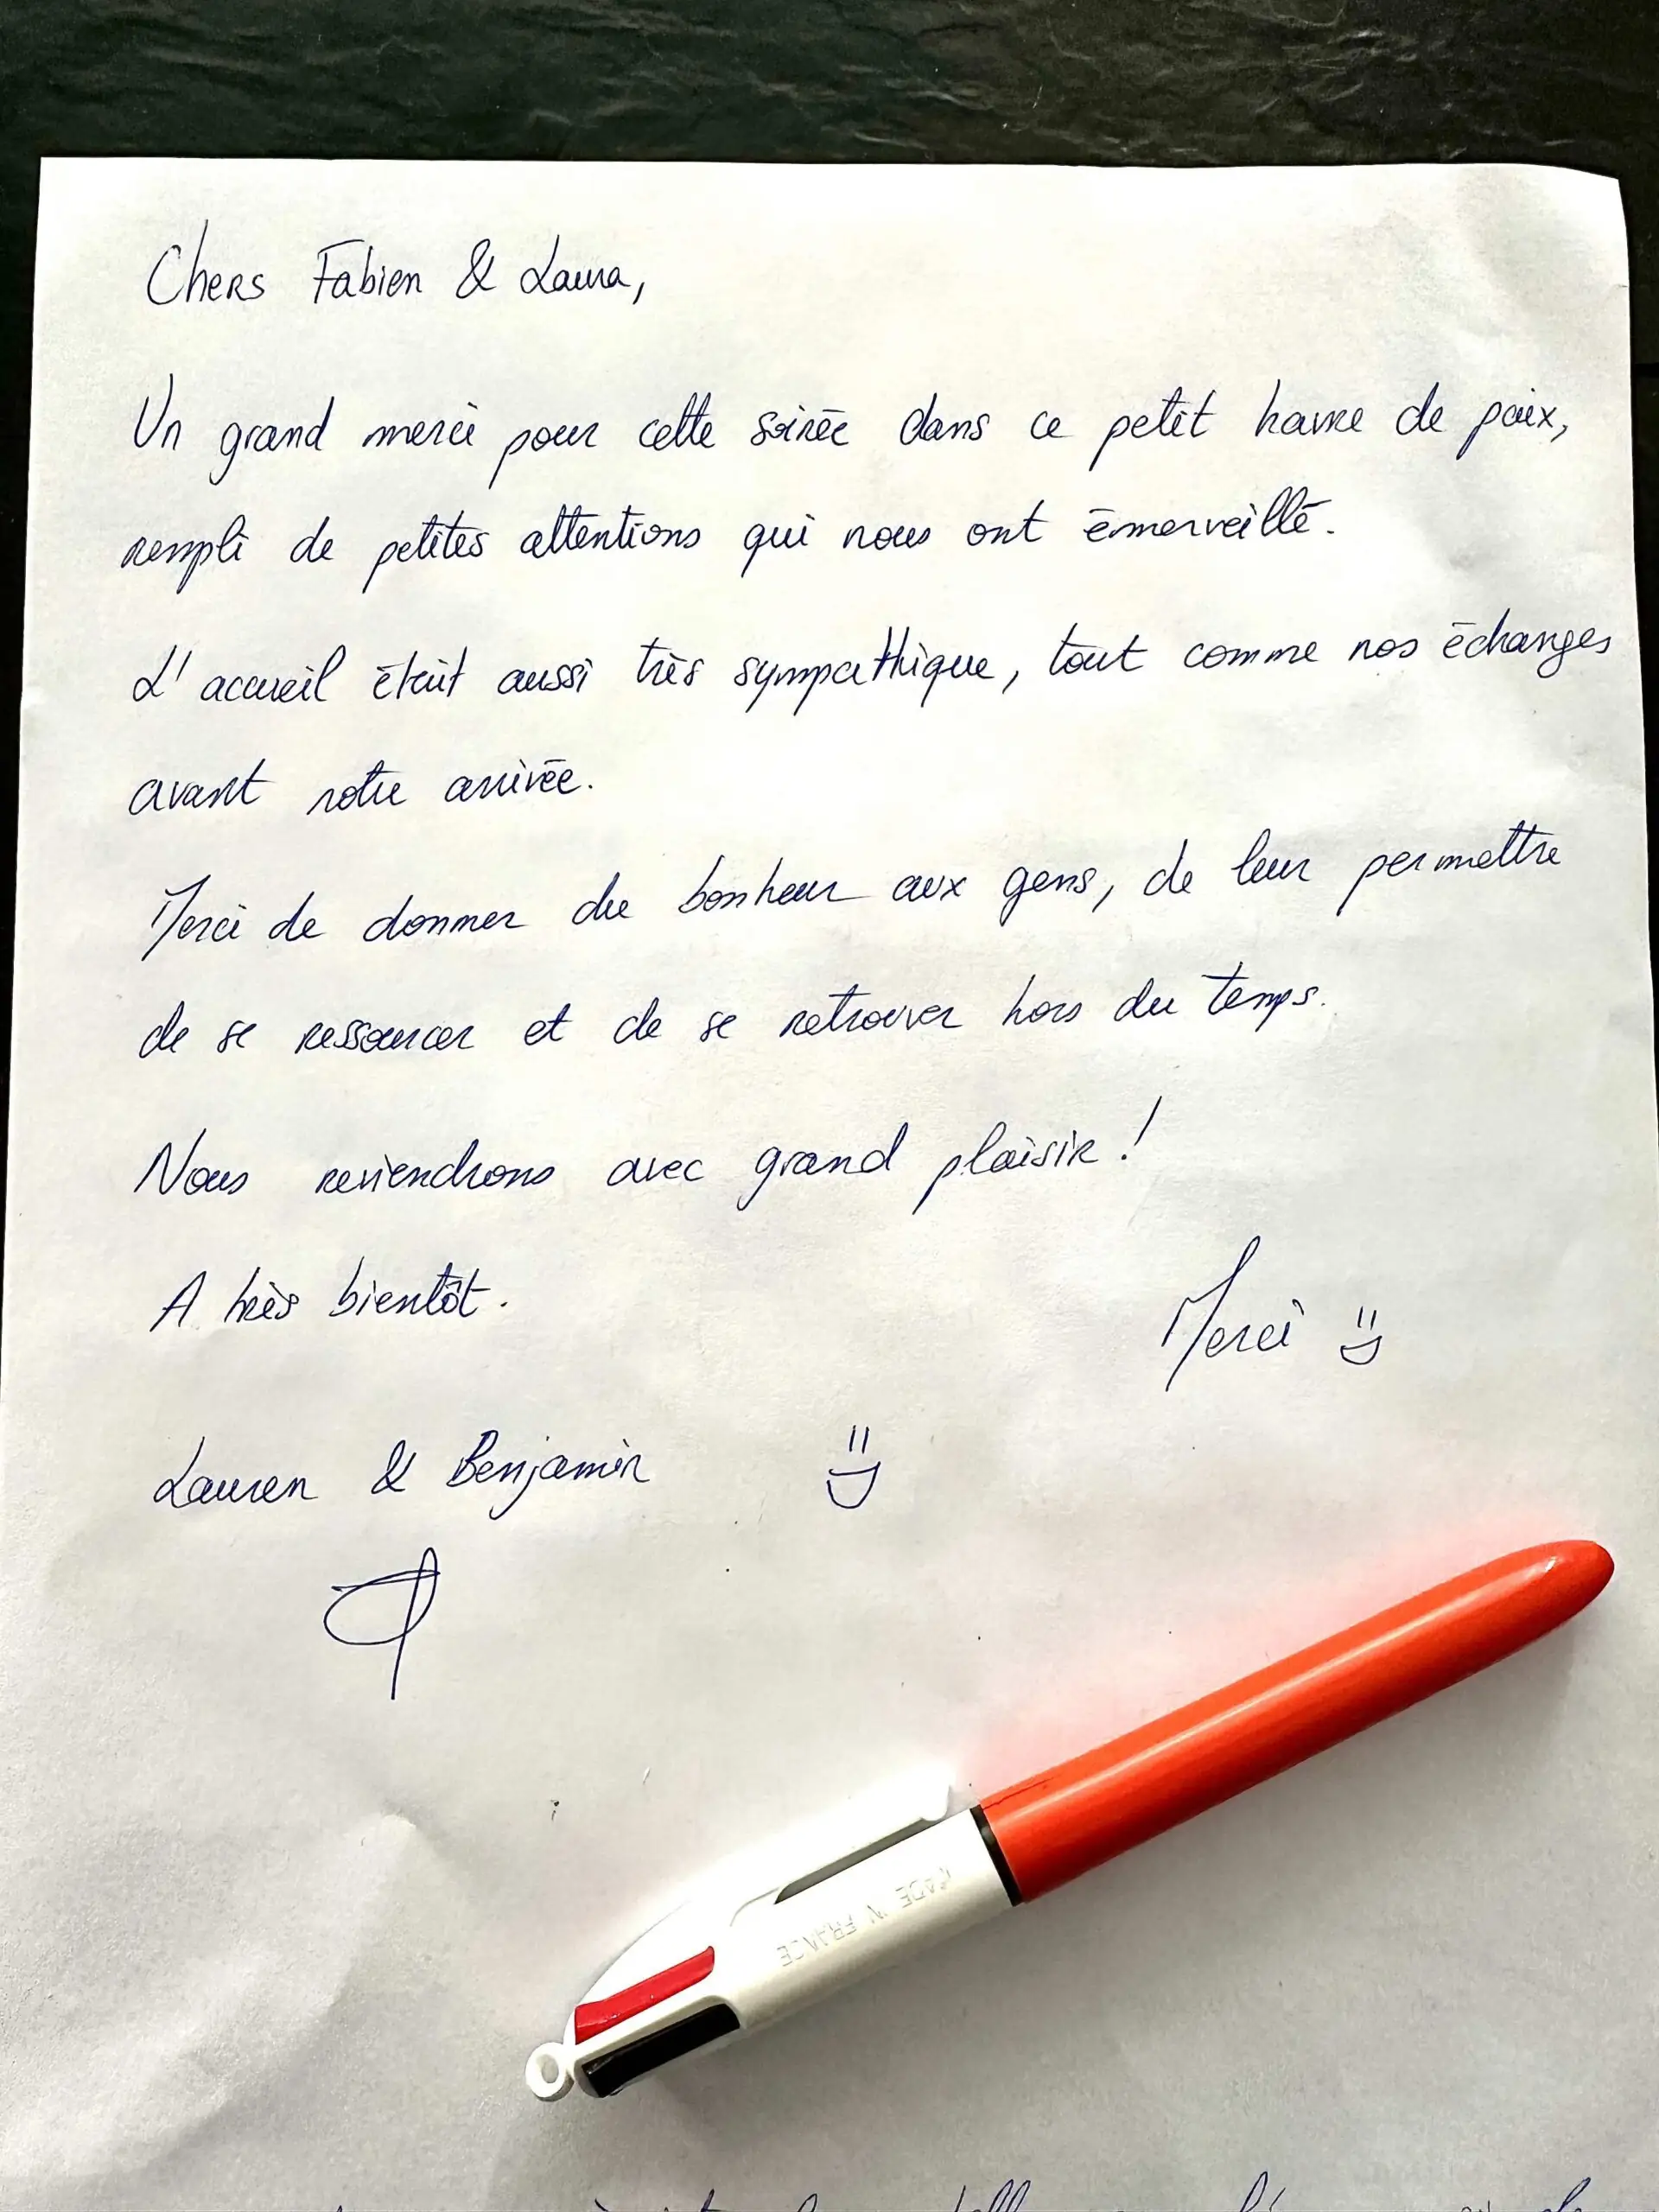 Chers Fabien & Laura,
Un grand merci pour cette soirée dans ce petit havre de paix,
rempli de petites attentions qui nous ont émerveillé.
L'accueil était aussi très sympathique, tout comme nos échanges
avant notre arrivée.
Merci de donner du bonheur aux gens, de leur permettre
de se ressourcer et de se retrouver hors du temps.
Nous reviendrons avec grand plaisir !
A très bientôt.
Merci =D
Lauren & Benjamin =D
MADE IN FRANCE